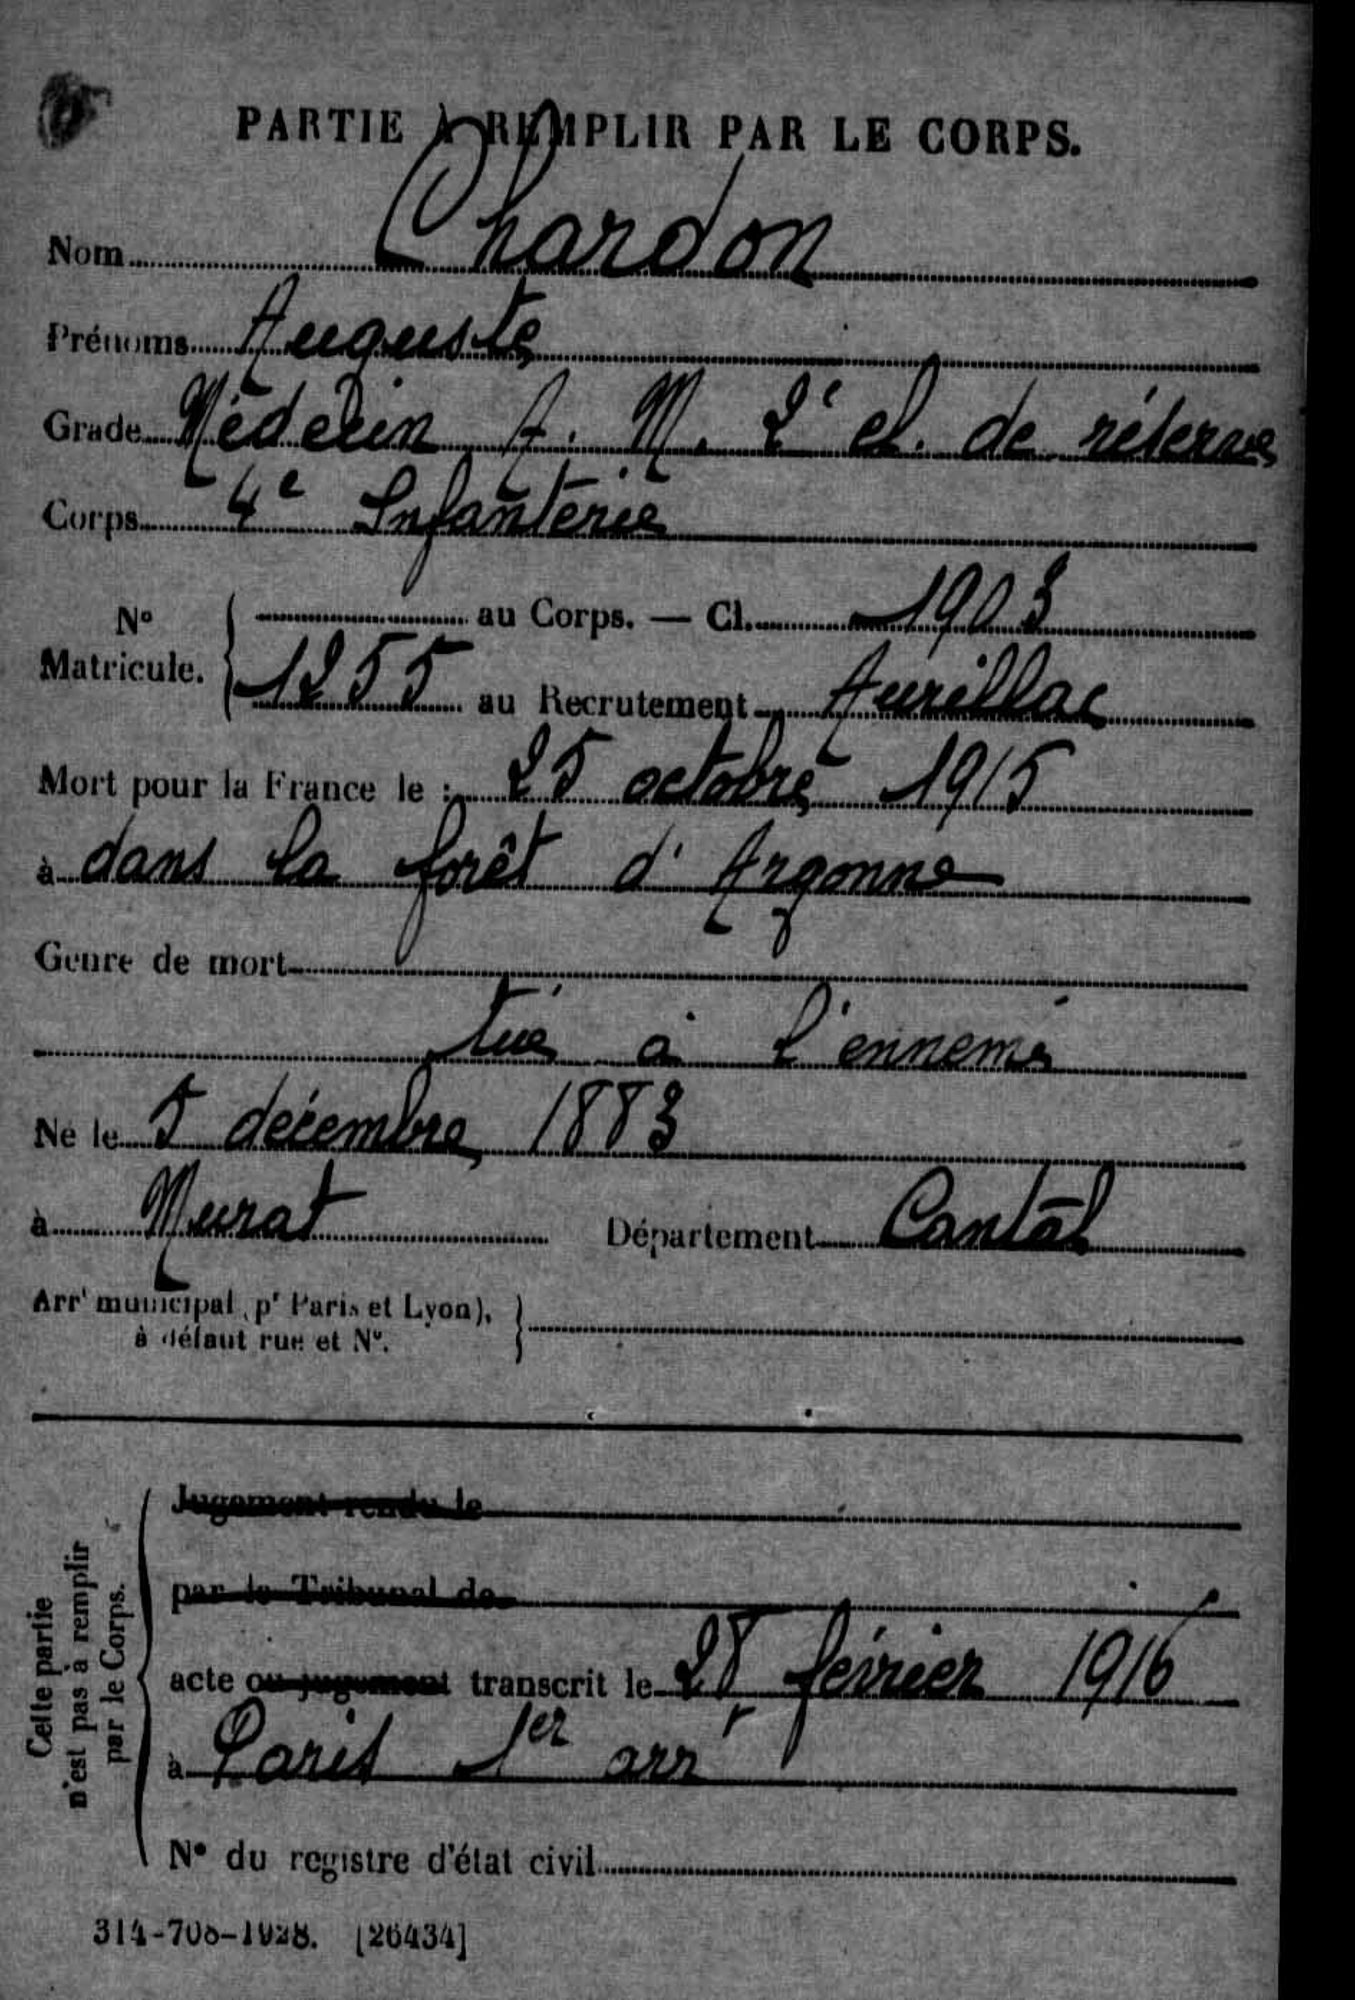 PARTIE À REMPLIR PAR LE CORPS.
Nom Chardon
Prénoms Auguste
Grade Médecin A. M. 2e cl. de réserve
Corps 4e Infanterie
No Matricule. { au Corps. — Cl. 1903
1255 au Recrutement Aurillac
Mort pour la France le : 25 octobre 1915
à dans la forêt d'Argonne
Genre de mort
tué à l'ennemi
Né le 5 décembre 1883
à Murat Département Cantal
Arrt municipal (pr Paris et Lyon), }
à défaut rue et No.
Cette partie
n'est pas à remplir
par le Corps.
Jugement rendu le
par le Tribunal de
acte ou jugement transcrit le 28 février 1916
à Paris 1er arrt
No du registre d'état civil
314-708-1928. [26434]